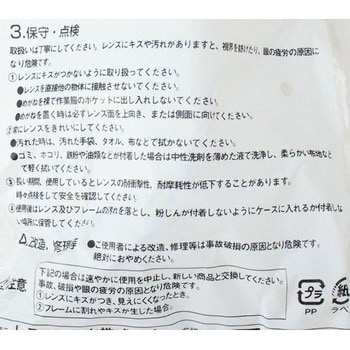 3.保守・点検
取扱いは丁寧にしてください。レンズにキズや汚れがありますと、視界を妨げたり、眼の疲労の原因に
なり危険です。
①レンズにキズがつかないように取り扱ってください。
●レンズを直接他の物体に接触させないでください。
●めがねを裸で作業服のポケットに出し入れしないでください。
●めがねを置く時は必ずレンズ面を上向き、または側面に向けてください。
②常にレンズをきれいにしてください。
●汚れた時は、汚れた手袋、タオル、布などで拭かないでください。
●ゴミ、ホコリ、鉄粉や油類などが付着した場合は中性洗剤を薄めた液で洗浄し、柔らかい布地などで
軽く拭いてください。
③長い期間、使用しているとレンズの耐衝撃性、耐摩耗性が低下することがあります。
時々点検をして安全を確認してください。
④使用後はレンズ及びフレームの汚れを落とし、粉じんが付着しないようにケースに入れるか付着しな
い場所に保管してください。
⚠改造、修理
●ご使用者による改造、修理等は事故破損の原因となり危険です。
絶対におやめください。
注意
下記の場合は速やかに使用を中止し、新しい商品と交換してください。
事故、破損や眼の疲労の原因となり危険です。
①レンズにキズがつき、見えにくくなったとき。
②フレームに割れやキズが生じた場合。
プラ
PP
紙
ラベ